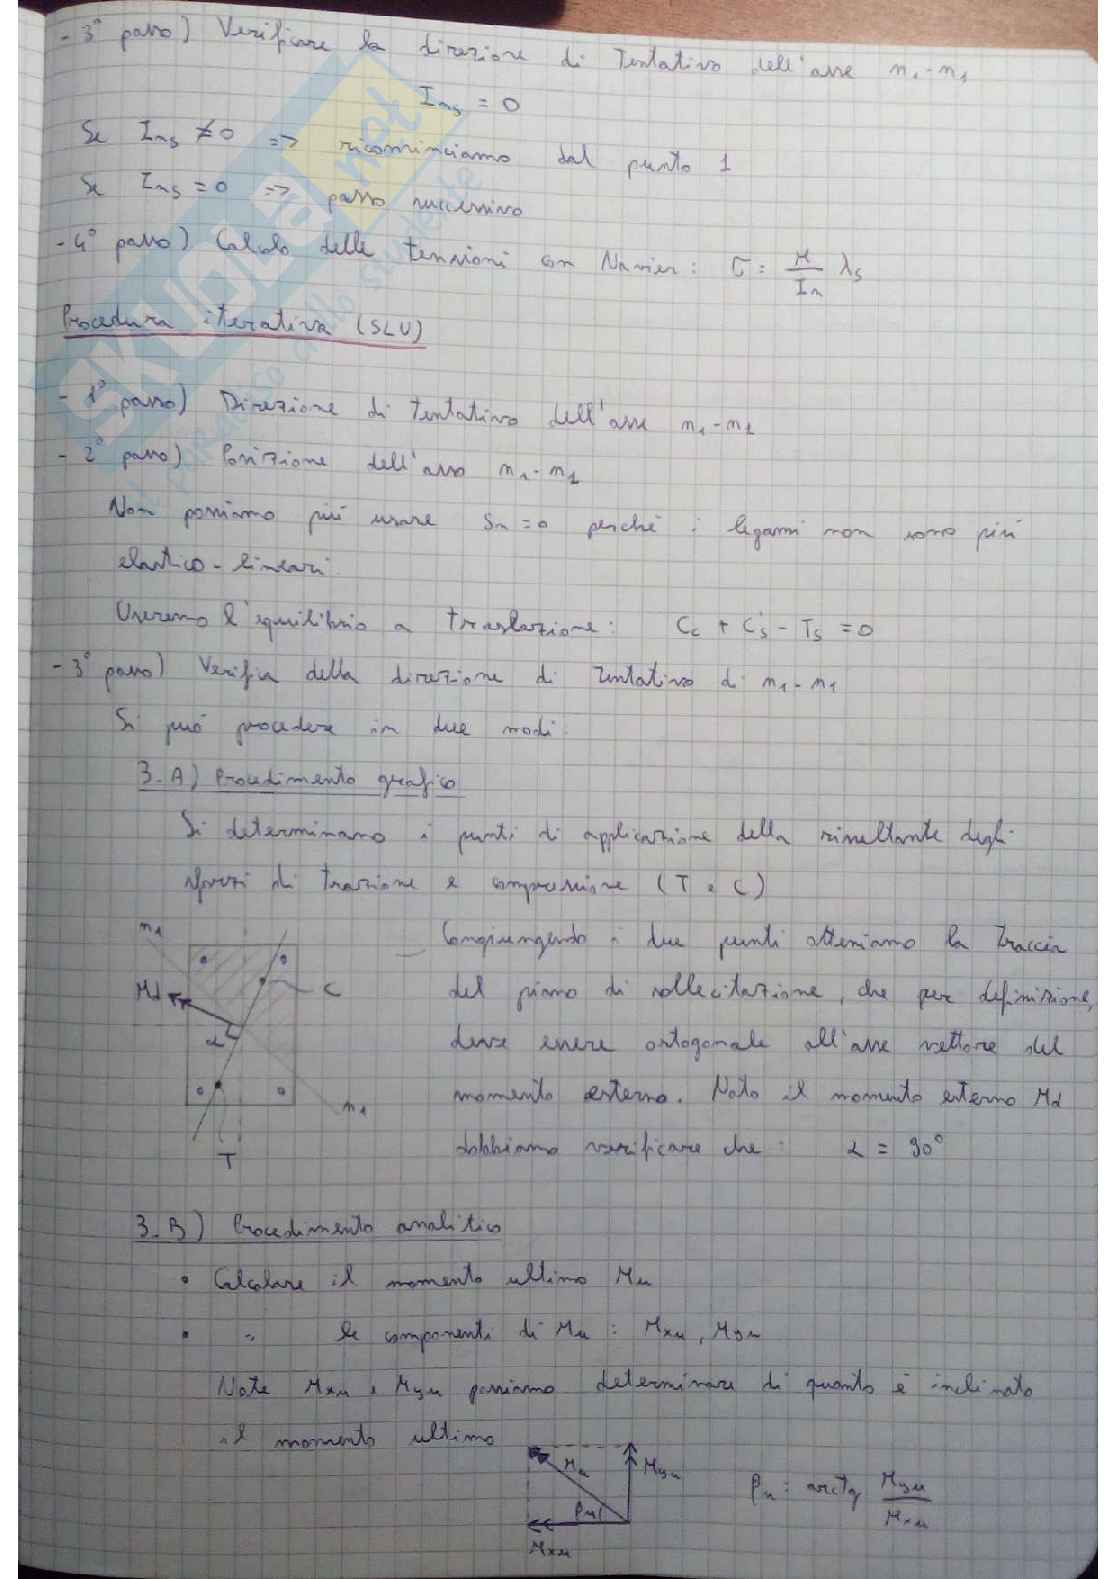 - 3° passo) Verificare la direzione di Tentativo dell'asse n₁-n₁
Iₙₛ = 0
Se Iₙₛ ≠ 0 => ricominciamo dal punto 1
Se Iₙₛ = 0 => passo successivo
- 4° passo) Calcolo delle tensioni con Navier: σ = M/Iₙ λₛ
Procedura iterativa (SLU)
- 1° passo) Direzione di tentativo dell'asse n₁-n₁
- 2° passo) Posizione dell'asse n₁-n₁
Non possiamo più usare Sₙ = 0 perché i legami non sono più
elastico-lineari.
Useremo l'equilibrio a traslazione: Cc + C's - Ts = 0
- 3° passo) Verifica della direzione di Tentativo di n₁-n₁
Si può procedere in due modi:
3.A) Procedimento grafico
Si determinano i punti di applicazione della risultante degli
sforzi di trazione e compressione (T e C)
Congiungendo i due punti otteniamo la Traccia
del piano di sollecitazione, che per definizione,
deve essere ortogonale all'asse vettore del
momento esterno. Noto il momento esterno Md
dobbiamo verificare che: α = 90°
n₁
Md
C
α
n₁
T
3.B) Procedimento analitico
• Calcolare il momento ultimo Mu
• " le componenti di Mu : Mxu, Myu
Note Mxu e Myu possiamo determinare di quanto è inclinato
il momento ultimo
Mu
Myu
βu
Mxu
βu = arctg Myu/Mxu
skuola.not